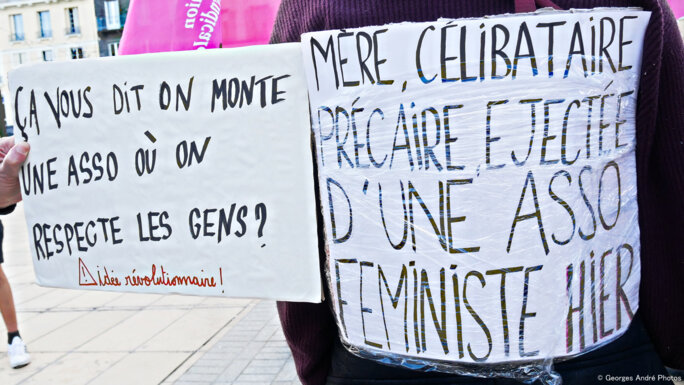 ion
syndicale
ÇA VOUS DIT ON MONTE
UNE ASSO OÙ ON
RESPECTE LES GENS?
⚠ idée révolutionnaire!
MÈRE, CÉLIBATAIRE
PRÉCAIRE, EJECTÉE
D'UNE ASSO
FÉMINISTE HIER
© Georges André Photos